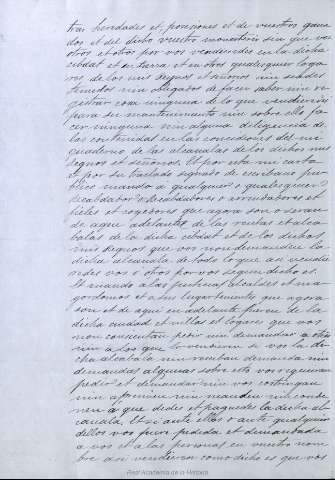 tras heredades et posesiones et de vuestros gana-
dos et del dicho vuestro monasterio sin que vos
otros et otros por vos vendieredes en la dicha
cibdat et su tierra et en otros qualesquier loga-
res de los mis regnos et señorios nin seades
tenudos nin obligados de facer saber nin re-
gistrar con ninguna de lo que vendieredes
para su mantenimiento nin sobre ello fa-
cer ninguna nin alguna diligencia de
las contenidas en las condiciones del mi
cuaderno de las alcavalas de los dichos mis
regnos et señorios. Et por esta mi carta
et por su traslado signado de escribano pu-
blico mando a qualquier o qualesquier
recabdador o recabdadores o arrendadores et
fieles et cogedores que agora son o seran
de aqui adelante de las rentas et alca-
balas de la dicha cibdat et de los dichos
mis regnos que vos non demanden la
dicha alcavala de todo lo que asi vendie-
redes vos o otros por vos segun dicho es.
Et mando a las justicias alcaldes et ma-
yordomos et a sus lugartenientes que agora
son et de aqui en adelante fueren de la
dicha ciudad et villas et logares que vos
non consientan pedir nin demandar a otro
nin a los que lo vendieren por vos la di-
cha alcabala nin resciban demanda nin
demandas algunas sobre esta vos quieran
pedir et demandar nin vos costringan
nin apremien nin manden nin conde-
nen a que dedes et paguedes la dicha al-
cavala. Et si ante ellos o ante qualquier
dellos vos fuere pedida et demandada
a vos et a las personas en vuestro nom-
bre asi vendieren como dicho es que vos
Real Academia de la Historia